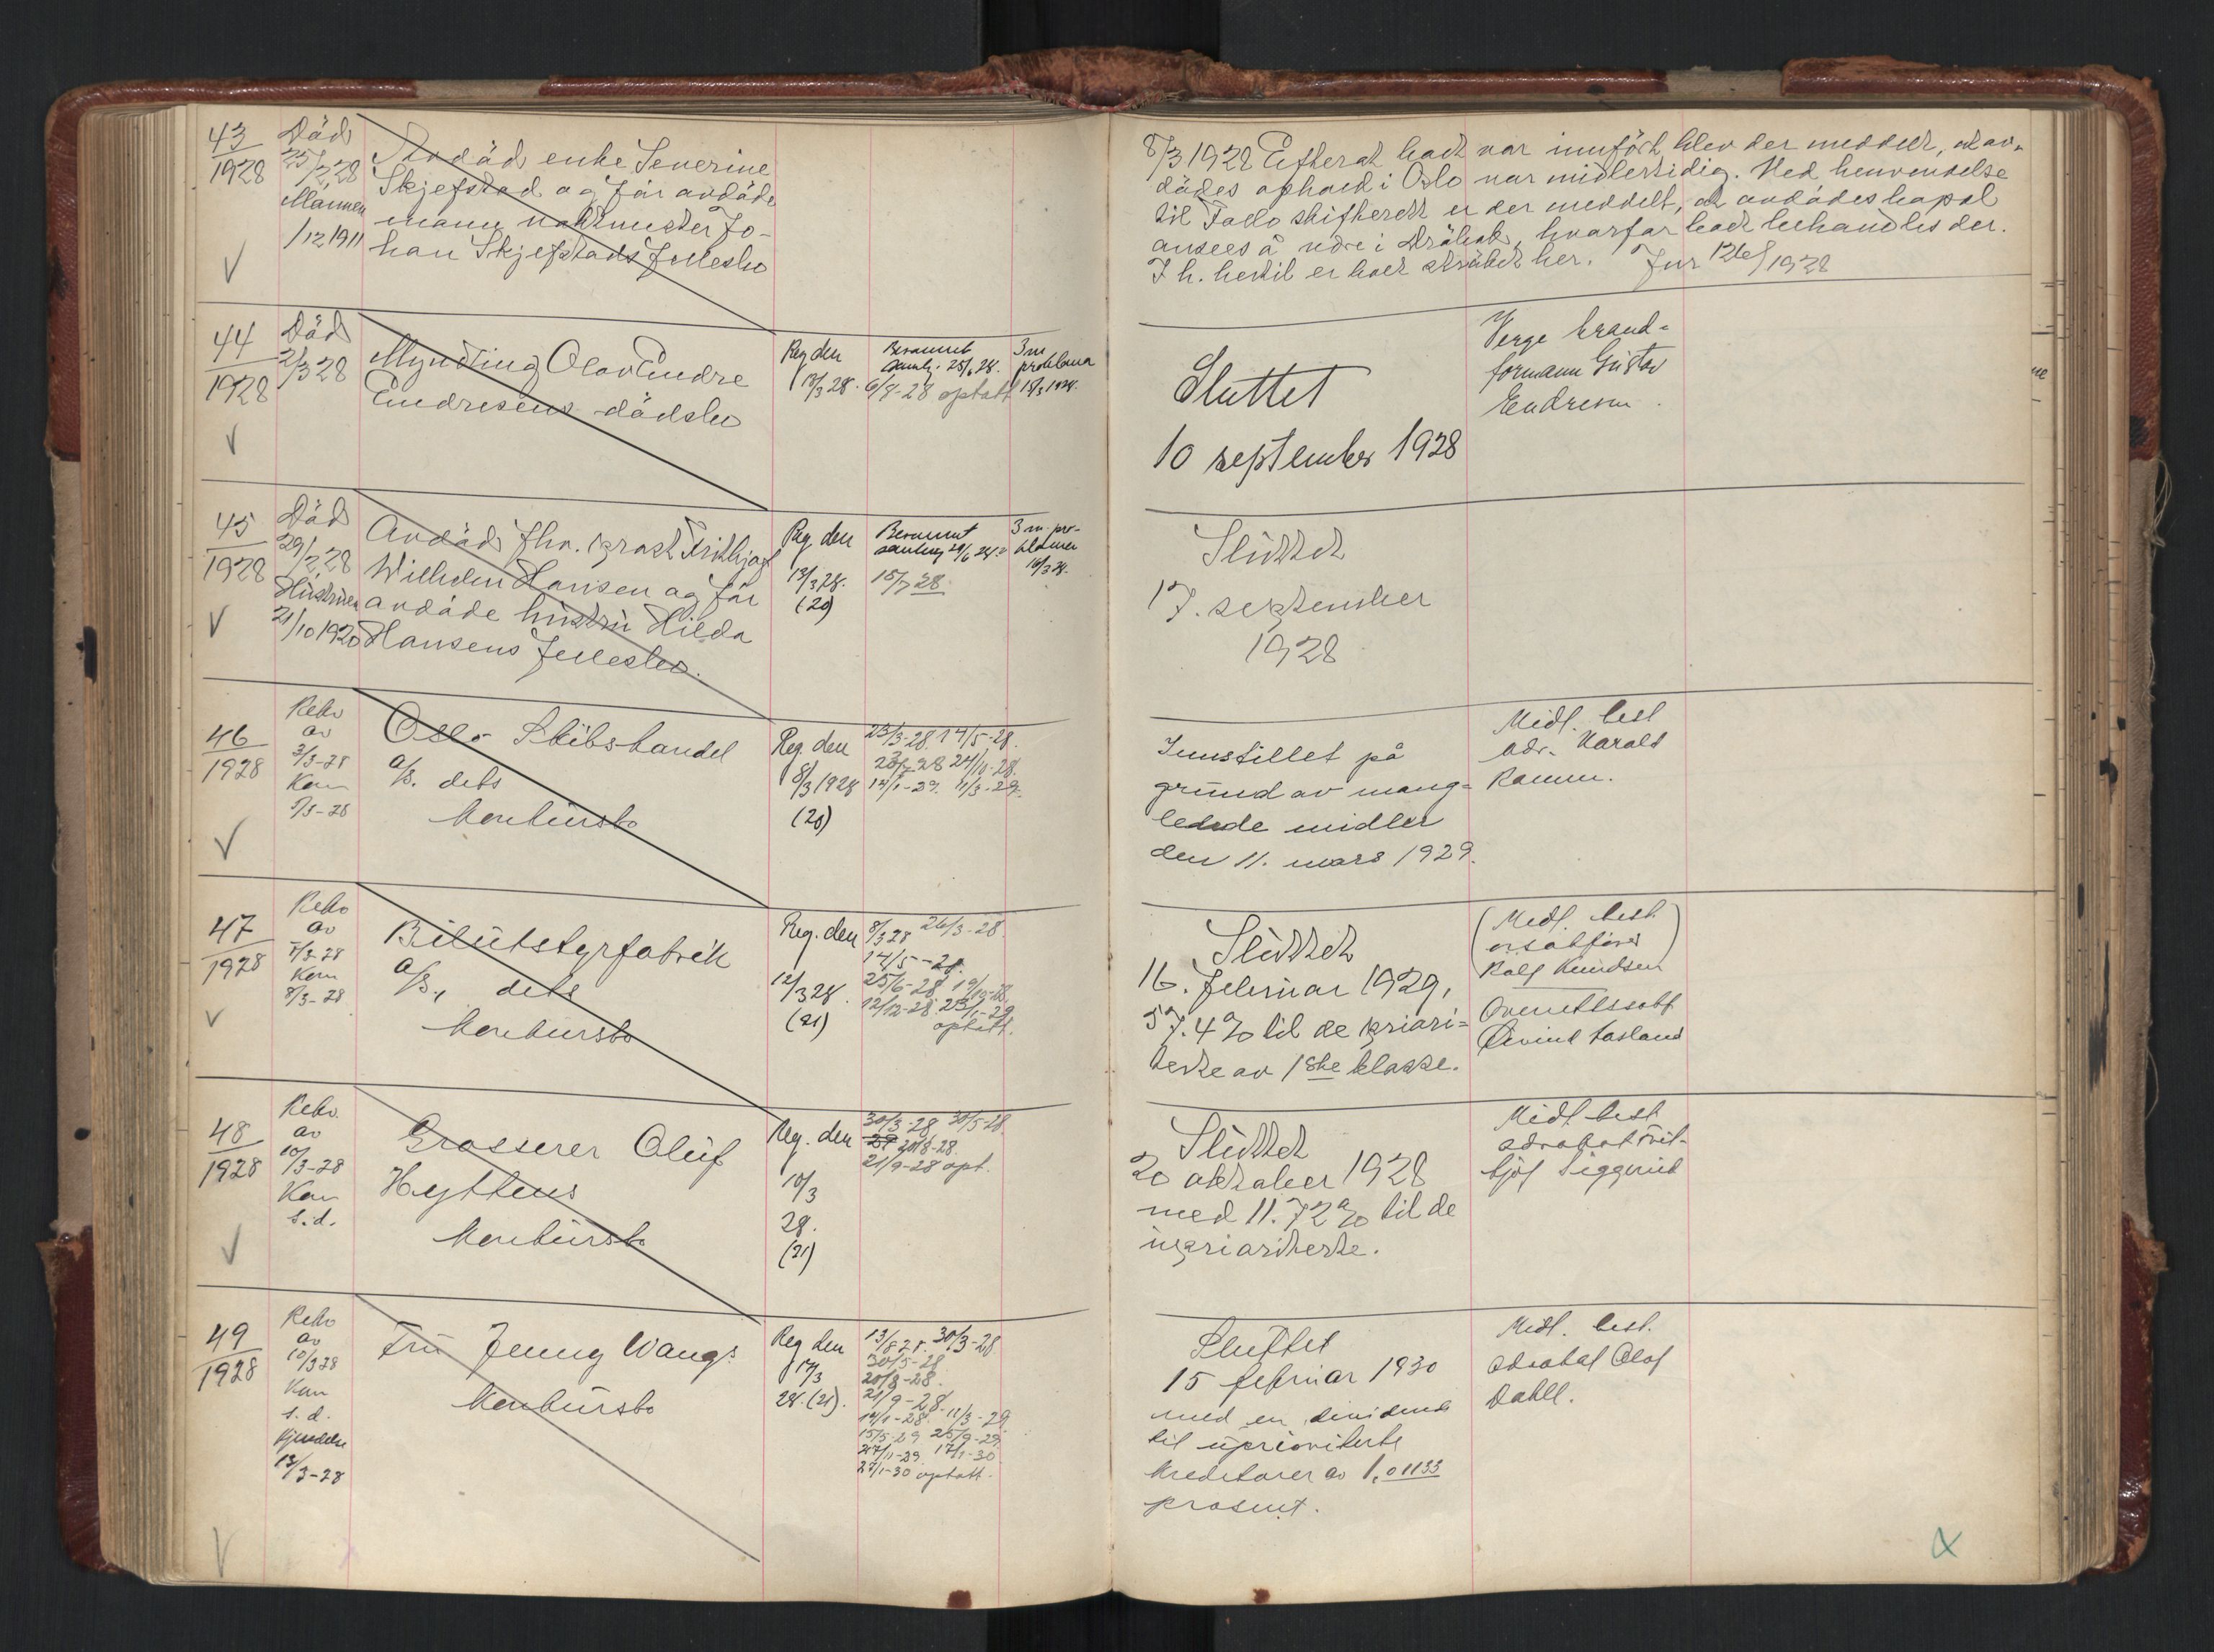 43
1928
Död
25/2 28
Mannen
/12 1911
Avdöd enke Severine
Skjefstad og før avdöde
mann vaktmester Jo-
han Skjefstads fellesbo
8/3 1928 Efterat boet var innfört blev der meddelt, at av-
dödes ophold i Oslo var midlertidig. Ved henvendelse
til Follo skifterett er der meddelt, at avdödes bopel
ansees å være i Dröbak, hvorfor boet behandles der.
I h. hertil er boet strüket her. Jnr 1268/1928
44
1928
Död
2/3 28
Myndling Olav Endre
Endresens dödsbo
Reg den
13/3 28.
Berammet
samlg. 25/6 28.
6/8-28 optatt
3 m
proklama
15/3 1928.
Sluttet
10 september 1928
Verge brand-
formann Gustav
Endresen.
45
1928
Död
29/2 28
Hüstruen
21/10 1920
Avdöd fhv. Frithjof
Wilhelm Hansen og før
avdöde hüstrü Hilda
Hansens fellesbo.
Reg. den
13/3 28.
(20)
Berammet
samling 29/6 28
15/7 28.
3 m. pro-
klama
16/3 28.
Slüttet
17. september
1928
46
1928
Rekv
av
3/3-28
Kon
5/3-28
Oslo Skibshandel
a/s. dets
konkürsbo
Reg. den
8/3 1928
(20)
23/3-28. 14/5-28.
24/10-28.
14/1-29. 11/3-29.
Innstillet på
gründ av mang-
lende midler
den 11. mars 1929.
Midl. best
adv. Harald
Ramm.
47
1928
Rekv
av
7/3-28
Kon
8/3-28
Bilütstyrfabrik
a/s., dets
konkürsbo
Reg. den
12/3 28.
(21)
8/3 28 26/3-28
14/5-28.
25/6-28 19/10-28
12/12-28. 25/1-29
optatt.
Slüttet
16. februar 1929,
57.4% til de priori-
terte av 1ste klasse.
(Midl. best.
Rolf Knudsen
Overrettssakf
Øivind Aasland
48
1928
Rekv.
av
10/3-28
Kon
s.d.
Grosserer Olüf
Hyttens
konkürsbo
Reg. den
10/3
28.
(21)
30/3-28 30/5-28
20/8-28.
21/9-28 opt.
Slüttet
20 oktober 1928
med 11.72% til de
üprioriterte.
Midl best
advokat Frit-
hjof Siggerud
49
1928
Rekv
av
10/3 28
Kon
s.d.
kjendelse
13/3-28
Frü Jenny Wangs
konkürsbo
Reg den
17/3
28. (21).
30/3-28
30/5-28
20/8-28.
21/9-28.
14/1-28. 11/3-29
15/5-29 25/9-29
27/11-29. 17/1-30
27/1-30 optatt.
Sluttet
15 februar 1930
med en dividende
til üprioriterte
kreditorer av 1,01133
prosent.
Midl. best.
advokat Olaf
Dahll.